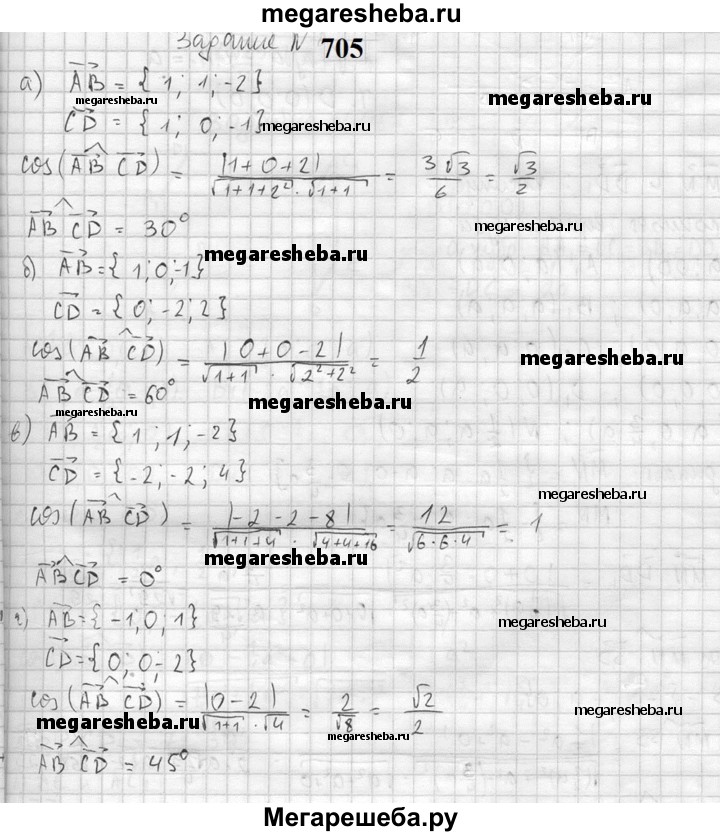 megaresheba.ru
Задание N 705
а) AB = { 1; 1; -2 }
megaresheba.ru
megaresheba.ru
CD = { 1; 0; -1 }
megaresheba.ru
cos(AB CD) = |1+0+2| / (√(1+1+2²) · √(1+1)) = 3√3/6 = √3/2
AB CD = 30°
megaresheba.ru
megaresheba.ru
б) AB = { 1; 0; -1 }
CD = { 0; -2; 2 }
cos(AB CD) = |0+0-2| / (√(1+1) · √(2²+2²)) = 1/2
megaresheba.ru
AB CD = 60°
megaresheba.ru
megaresheba.ru
в) AB = { 1; 1; -2 }
CD = { -2; -2; 4 }
megaresheba.ru
cos(AB CD) = |-2-2-8| / (√(1+1+4) · √(4+4+16)) = 12/√(6·6·4) = 1
megaresheba.ru
AB CD = 0°
г) AB = { -1; 0; 1 }
megaresheba.ru
CD = { 0; 0; -2 }
cos(AB CD) = |0-2| / (√(1+1) · √4) = 2/√8 = √2/2
megaresheba.ru
megaresheba.ru
megaresheba.ru
AB CD = 45°
Мегарешеба.ру